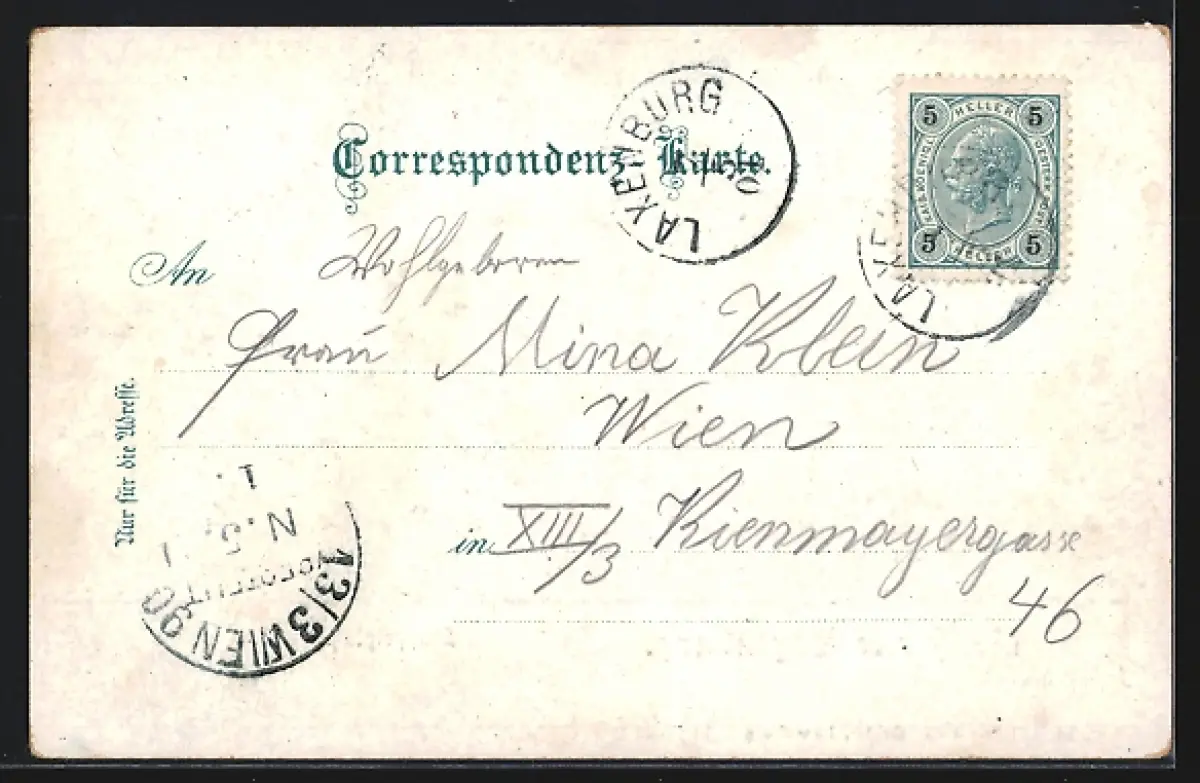 Correspondenz-Karte.
LAXENBURG
5 HELLER 5
5 HELLER 5
An Wohlgeboren
Frau Mina Klein
Wien
in XIII/3 Kienmayergasse
46
Nur für die Adresse.
1.
N.5.
13/3 WIEN 90